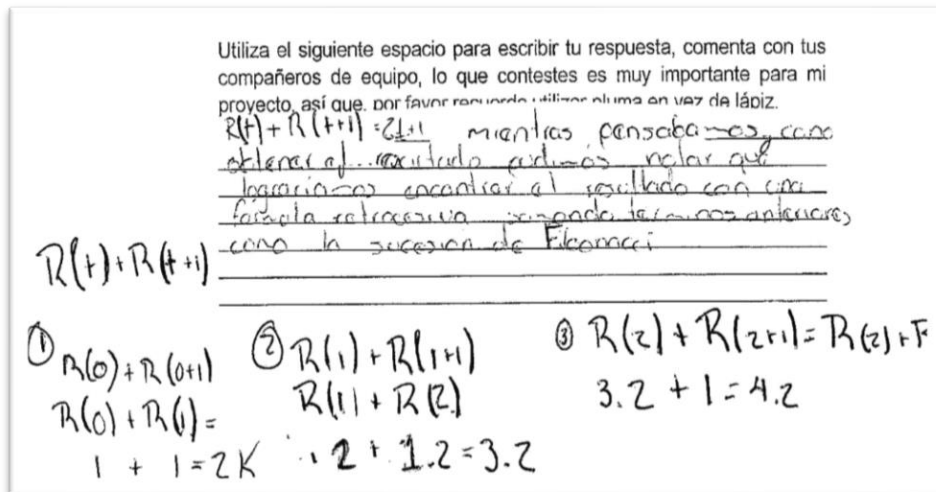 Utiliza el siguiente espacio para escribir tu respuesta, comenta con tus
compañeros de equipo, lo que contestes es muy importante para mi
proyecto, así que, por favor recuerda utilizar pluma en vez de lápiz.
R(t) + R(t+1) = mientras pensabamos, como
obtener el resultado pudimos notar que
lograriamos encontrar el resultado con una
formula retrocesiva terminos anteriores
como la sucesion de
R(t) + R(t+1)
① R(0) + R(0+1)
R(0) + R(1) =
1 + 1 = 2K
② R(1) + R(1+1)
R(1) + R(2)
2 + 1.2 = 3.2
③ R(2) + R(2+1) = R(2) + F
3.2 + 1 = 4.2